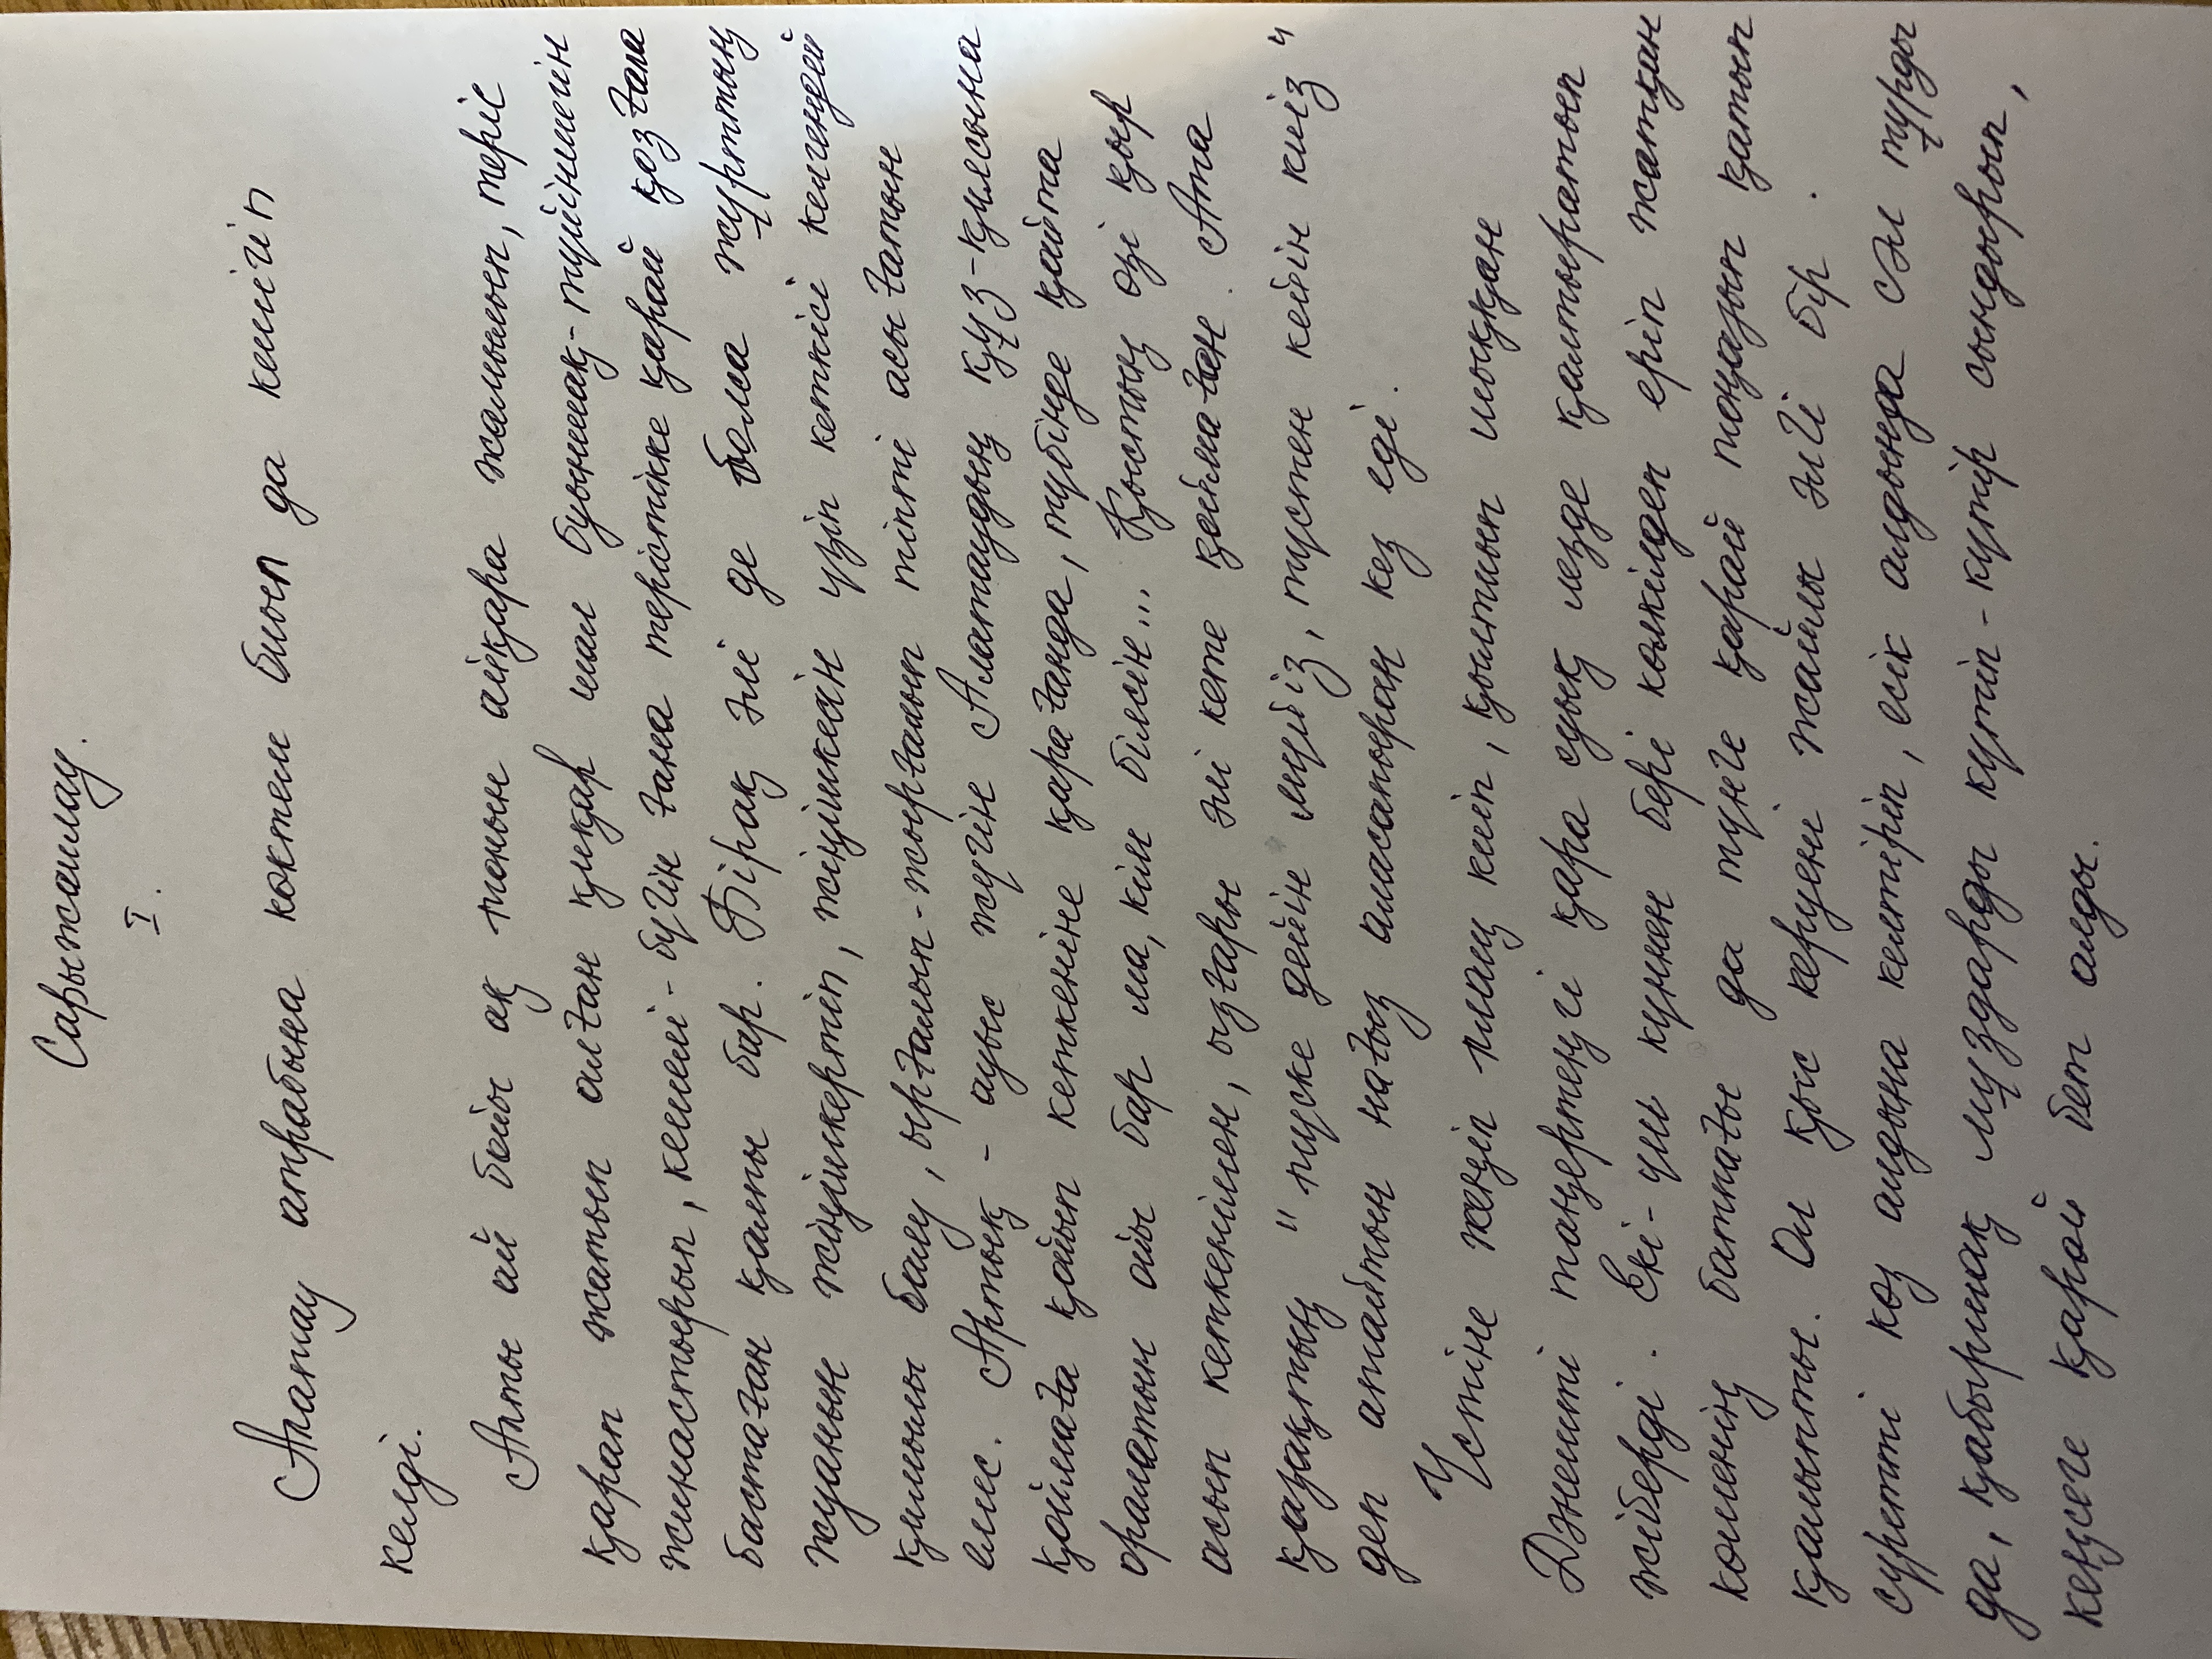 Сарыжайлау.
I.
Алатау атрабына көктем биыл да кешігіп
келді.
Алты ай бойы ақ тонын айқара жамылып, теріс
қарап жатып алған қиқар шал буыншақ-түйіншегін
жинастырып, кешелі-бүгін ғана терістікке қарай қозғала
бастаған қалпы бар. Бірақ әлі де болса жұрттың
жуанын жіңішкертіп, жіңішкесін үзіп кеткісі келгендей
қимылы баяу, ырғалып-жырғалып тіпті асығатын
емес. Артық - ауыс жүгін Алатаудың құз-қиясына
қоймаға қойып кеткеніне қарағанда, түбінде қайта
оралатын ойы бар ма, кім білсін... Қыстың өзі қыр
асып кеткенімен, ызғары әлі кете қоймаған. Ата
қазақтың "түске дейін мүйіз, түстен кейін киіз"
деп атайтын нағыз аласапыран кез еді.
Үстіне жеңіл плащ киіп, қылтиып шыққан
Дәнешті таңертеңгі қара суық лезде қалтыратып
жіберді. Екі-үш күннен бері көлкілдеп еріп жатқан
көшенің батпағы да түнге қарай тоңазып қатып
қалыпты. Ол қыс керуені жайлы әлгі бір
суретті көз алдына келтіріп, есік алдында сәл тұрды
да, қабыршақ мұздарды күтіп-күтір сындырып,
кеңсеге қарай бет алды.